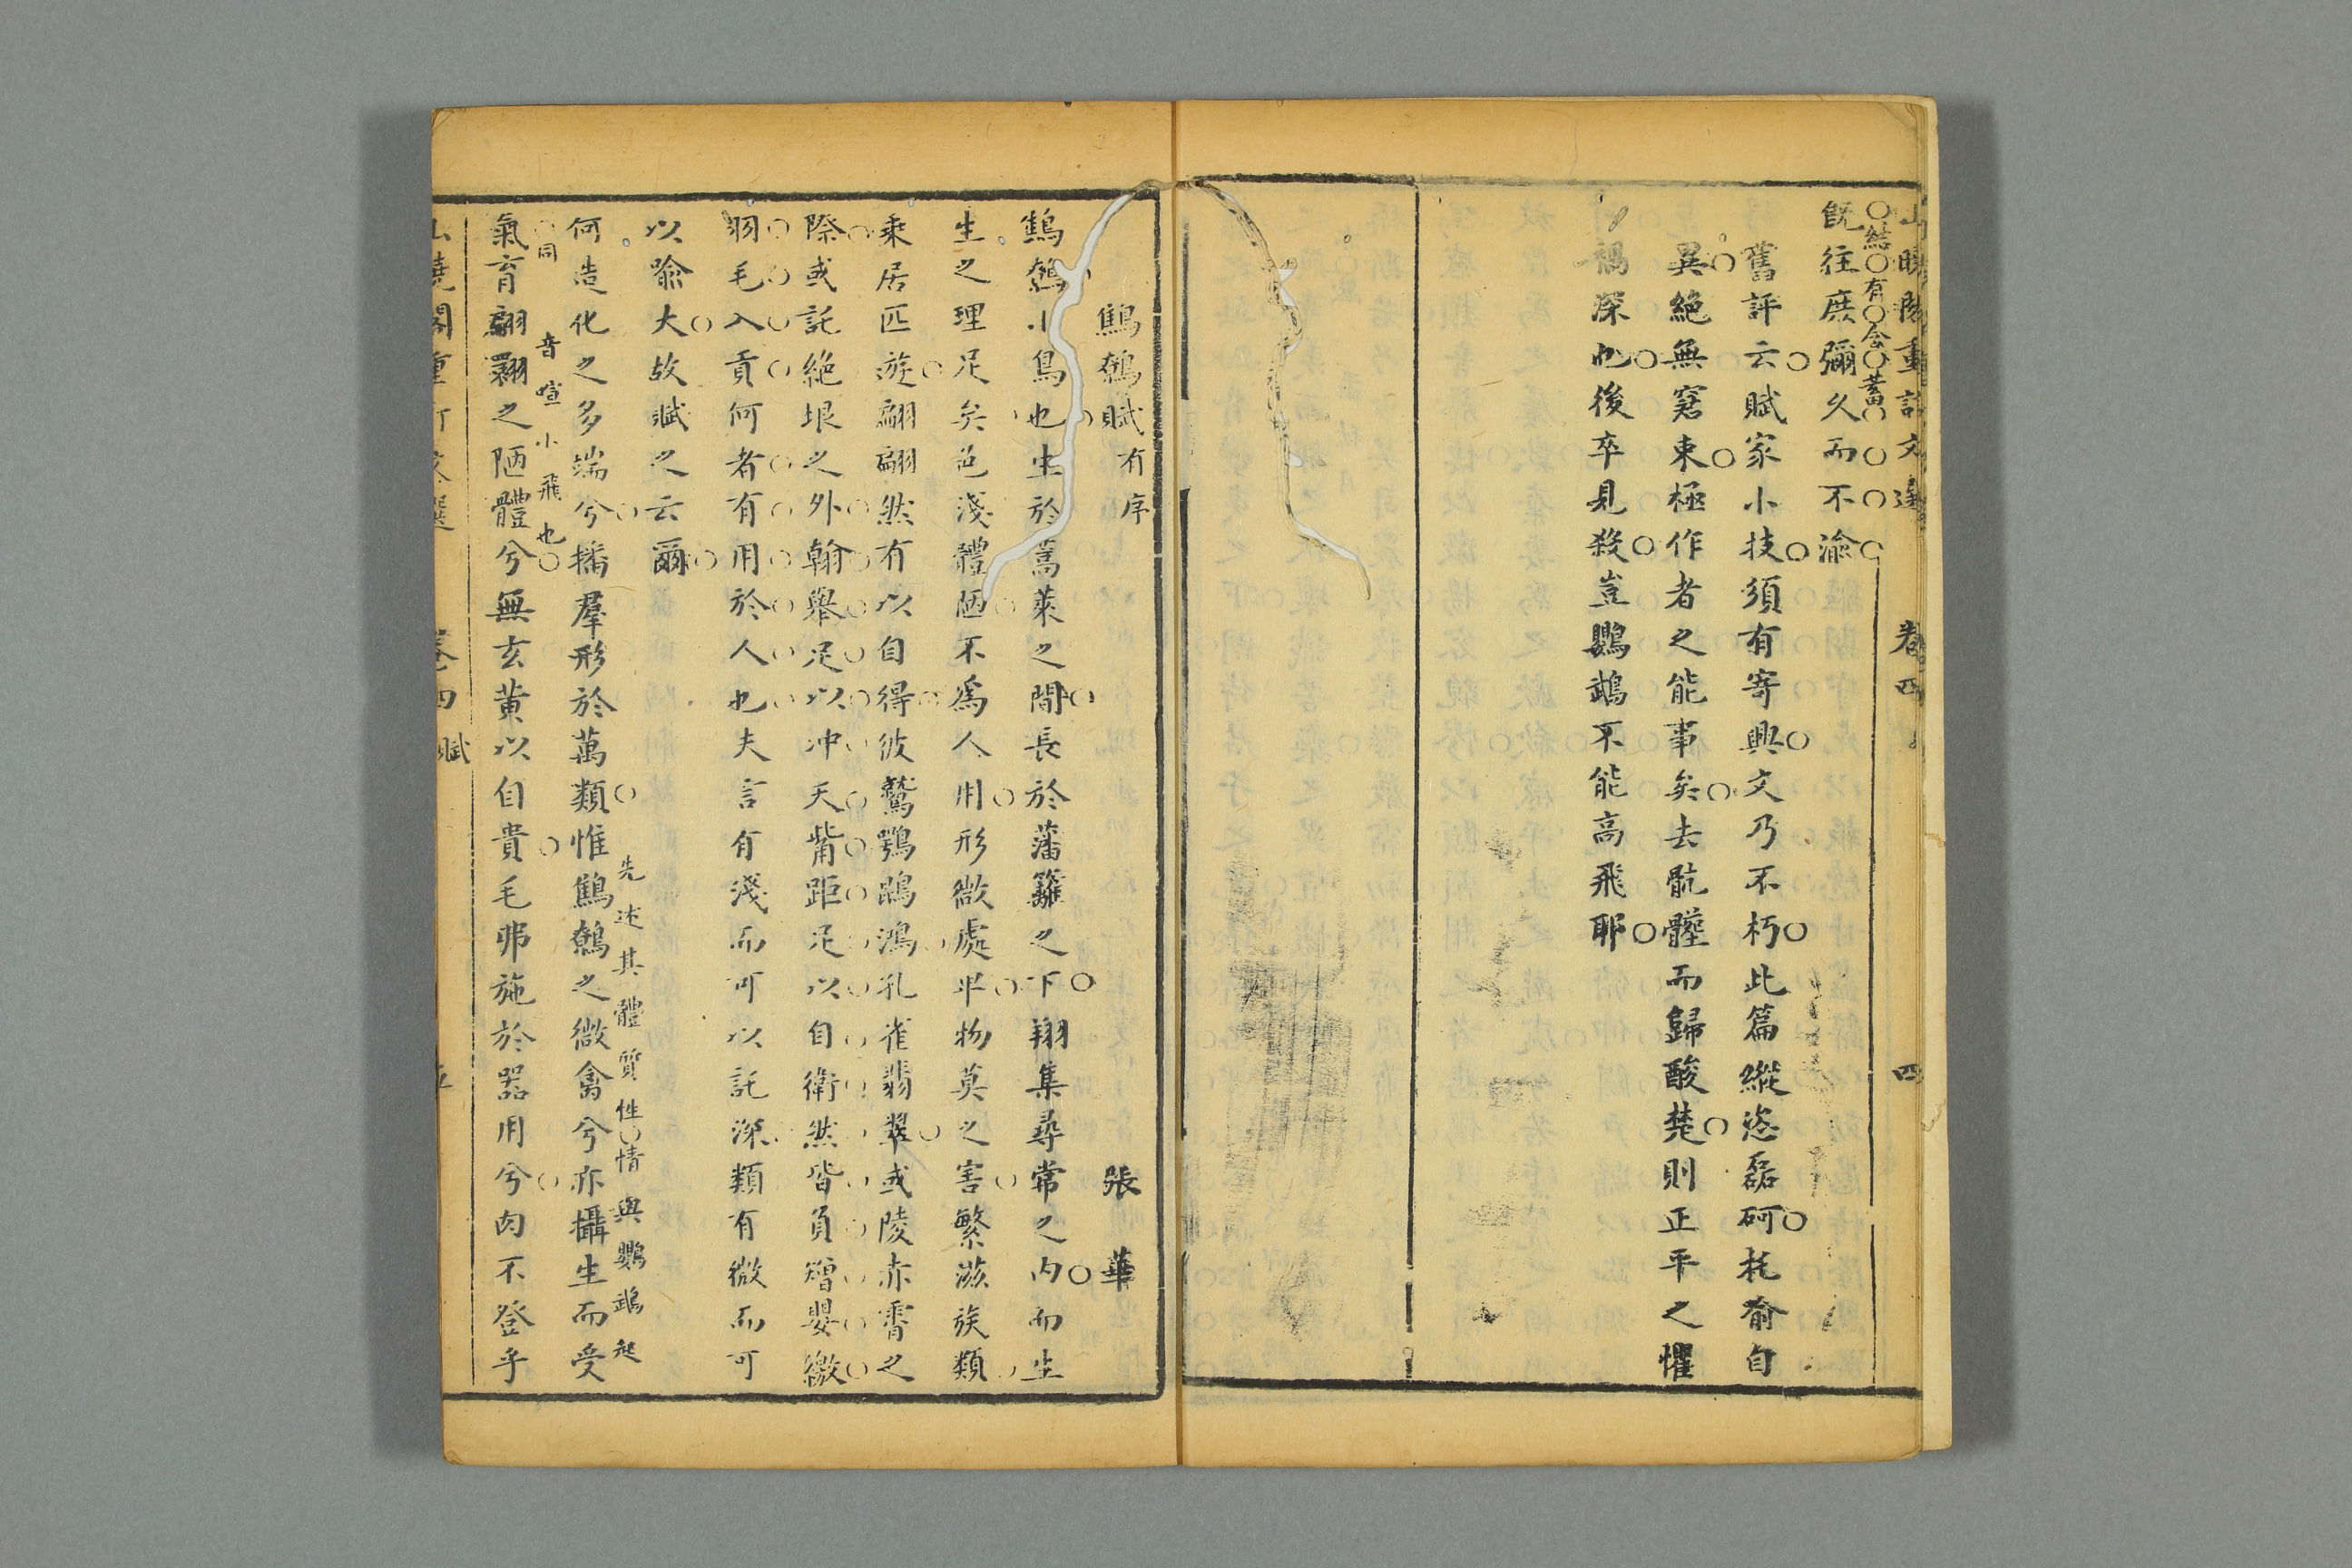 山曉閣重訂文選 卷四 四
結有含蓄
旣往庶彌久而不渝
舊評云賦家小技須有寄興文乃不朽此篇縱恣磊砢耗奇自
異絕無窘束極作者之能事矣去骯髒而歸酸楚則正平之懼
禍深也後卒見殺豈鸚鵡不能高飛耶
鷦鷯賦有序 張華
鷦鷯小鳥也生於蒿萊之間長於藩籬之下翔集尋常之內而生
生之理足矣色淺體陋不爲人用形微處卑物莫之害繁滋族類
乘居匹遊翩翩然有以自得彼鷲鶚鵾鴻孔雀翡翠或陵赤霄之
際或託絕垠之外翰舉足以冲天觜距足以自衛然皆負矰嬰繳
羽毛入貢何者有用於人也夫言有淺而可以託深類有微而可
以喻大故賦之云爾
先述其體質性情與鸚鵡起
何造化之多端兮播羣形於萬類惟鷦鷯之微禽兮亦攝生而受
同 音喧小飛也
氣育翩翾之陋體兮無玄黃以自貴毛弗施於器用兮肉不登乎
山曉閣重訂文選 卷四 賦 五